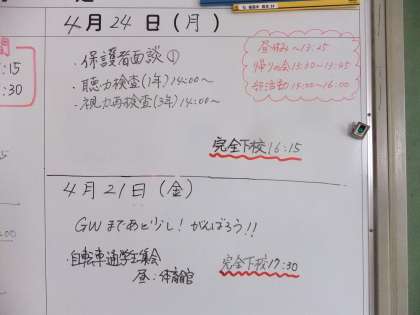 4月24日(月)
・保護者面談①
・聴力検査(1年)14:00~
・視力再検査(3年)14:00~
昼休み~13:25
帰りの会15:30~13:45
部活動15:00~16:00
完全下校16:15
:15
:30
4月21日(金)
GWまであと少し!がんばろう!!
・自転車通学生集会
昼:体育館
完全下校17:30